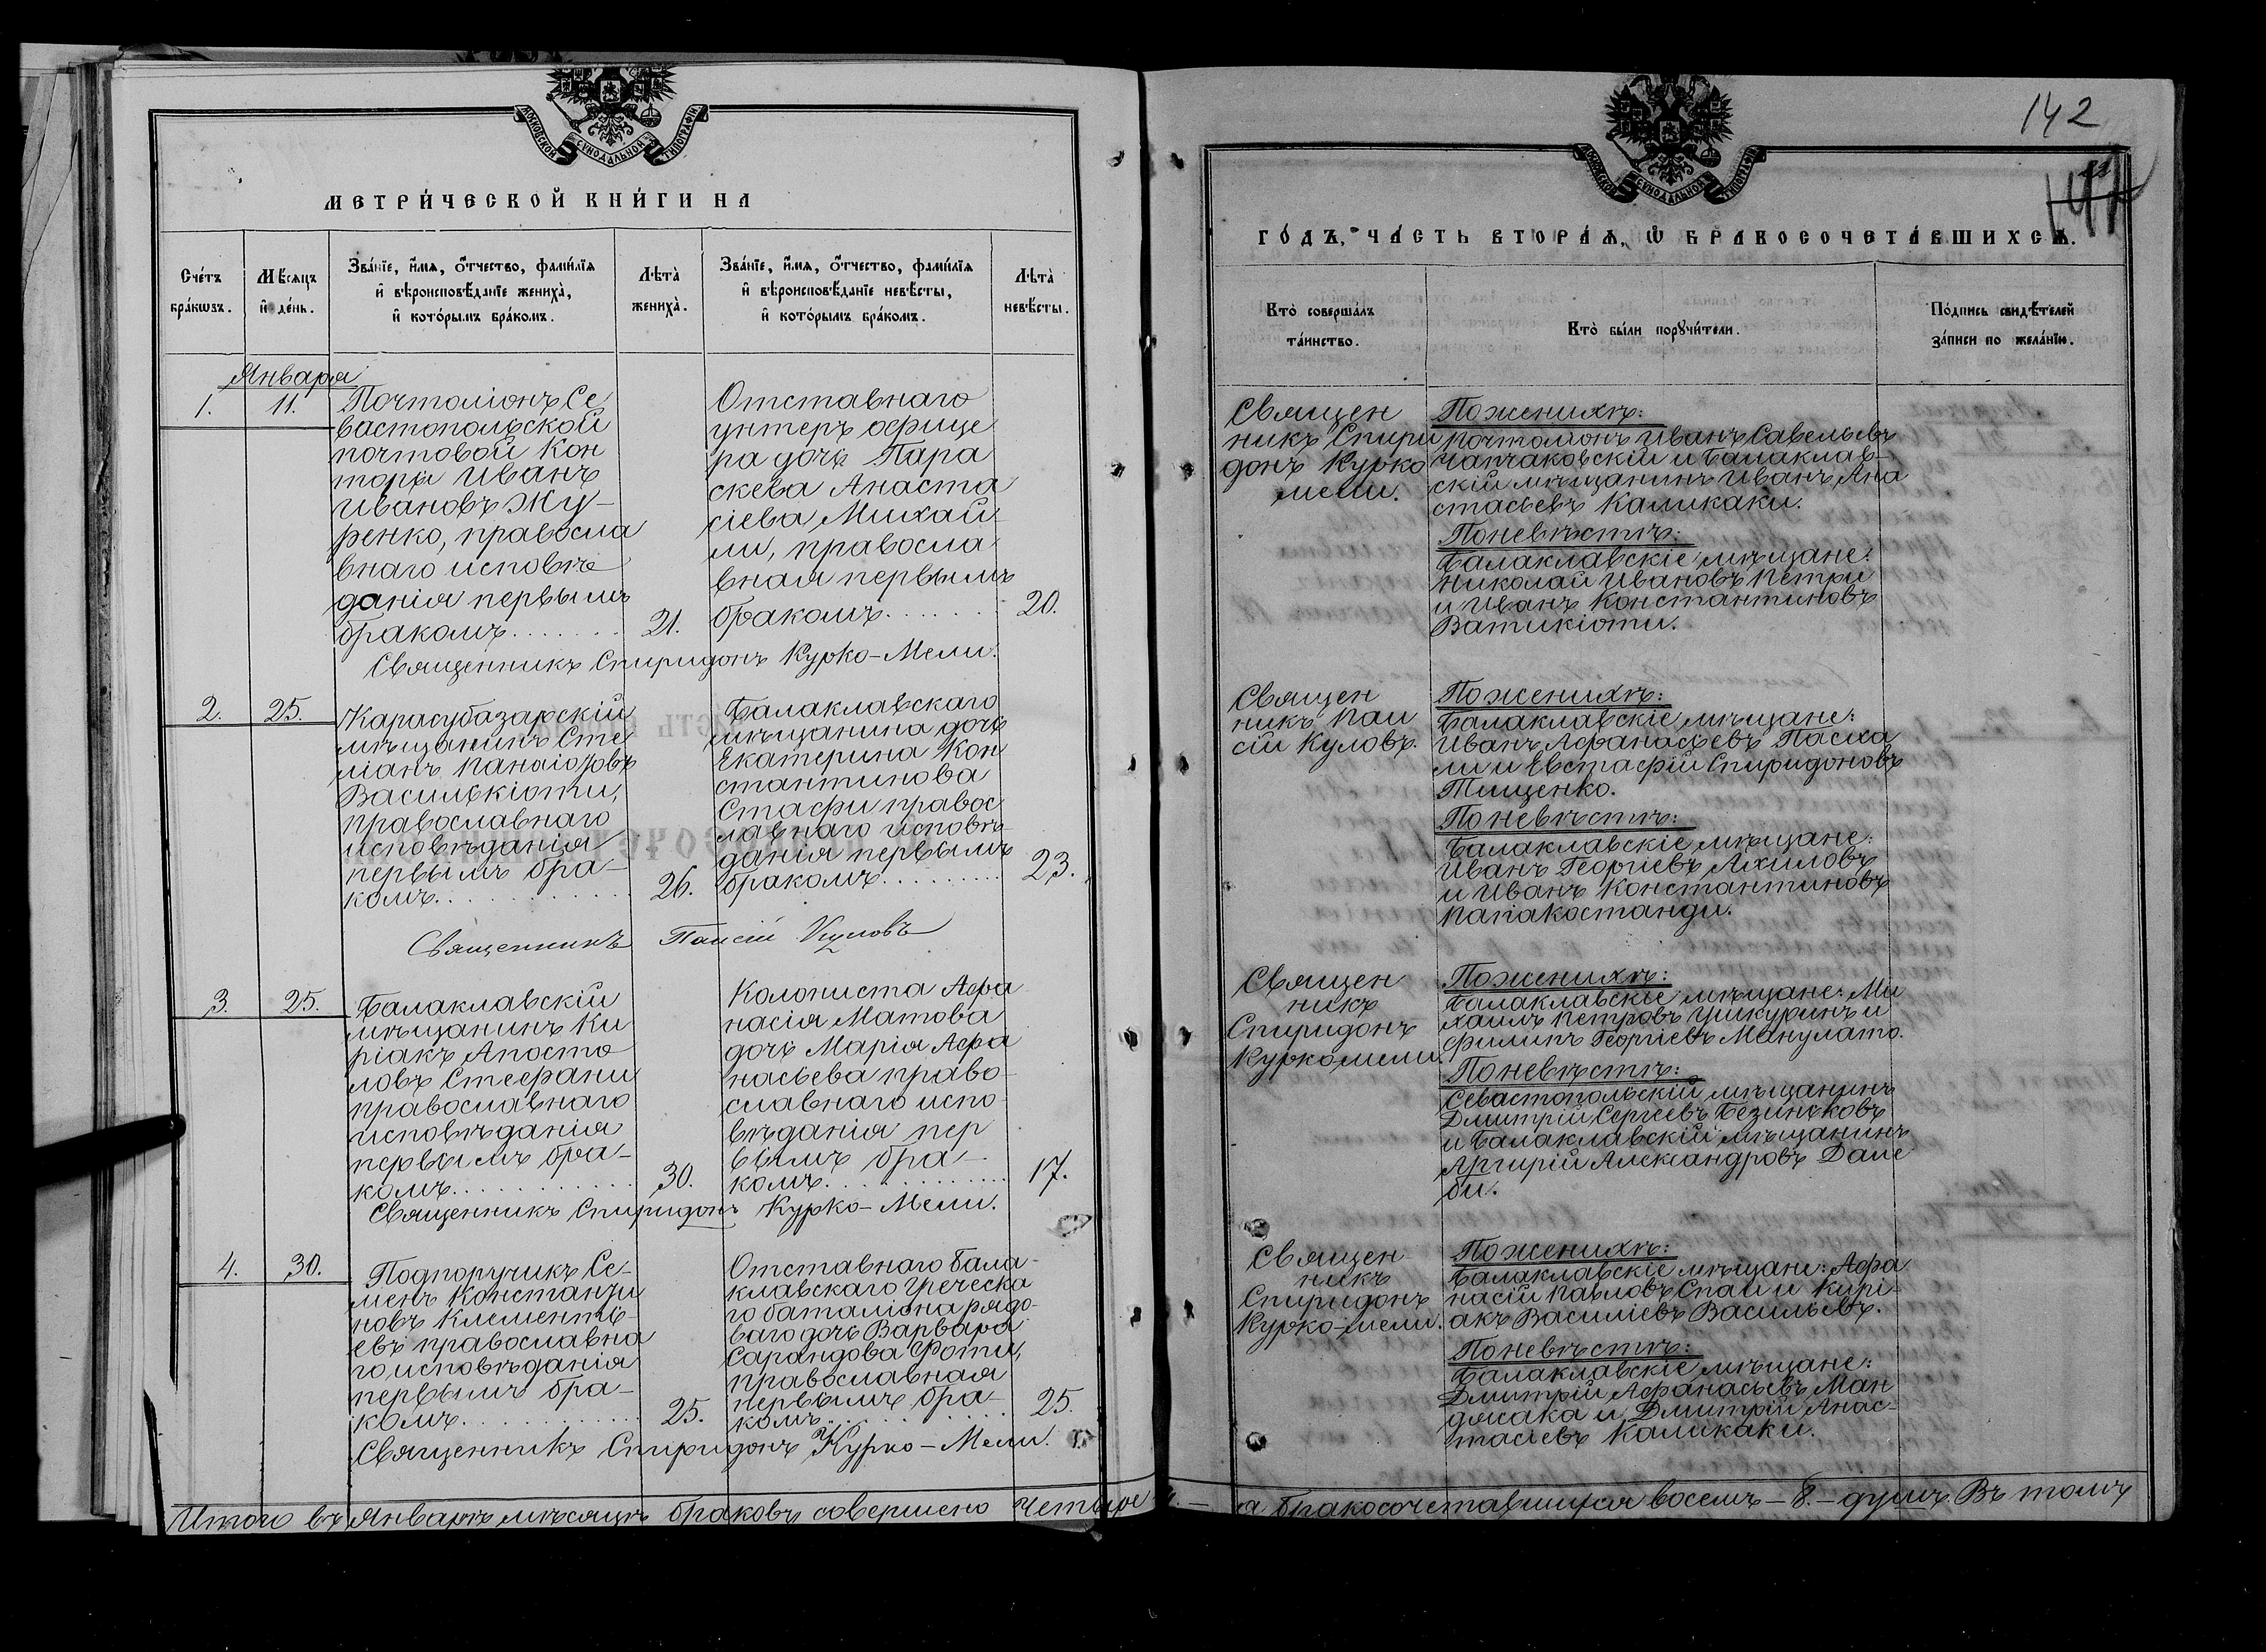 МОСКОВСКОЙ СѴНОДАЛЬНОЙ ТИПОГРАФІИ
МЕТРИ́ЧЕСКОЙ КНИ́ГИ НА
Сче́тъ
бра́кѡвъ.
Мѣ́сяцъ
и҆ де́нь.
Зва́нїе, и҆́мѧ, ѻ҆́тчество, фами́лїѧ
и҆ вѣроисповѣ́данїе жениха̀,
и҆ кото́рымъ бра́комъ.
Лѣта̀
жениха̀.
Зва́нїе, и҆́мѧ, ѻ҆́тчество, фами́лїѧ
и҆ вѣроисповѣ́данїе невѣ́сты,
и҆ кото́рымъ бра́комъ.
Лѣта̀
невѣ́сты.
Января
1.
11.
Почталіонъ Се
вастопольской
почтовой Кон
торы Иванъ
Ивановъ Жу-
ренко, правосла
внаго исповѣ
данія первымъ
бракомъ.......
21.
Отставнаго
унтеръ офице
ра дочь Пара
скева Анаста
сіева Михай
ли, правосла
вная первымъ
бракомъ.......
20.
Священникъ Спиридонъ Курко-Мели.
2.
25.
Карасубазарскій
мѣщанинъ Сте
ліанъ Панаіотовъ
Василькіоти,
православнаго
исповѣданія
первымъ бра-
комъ...........
26.
Балаклавскаго
мѣщанина дочь
Екатерина Кон
стантинова
Стафи правос
лавнаго исповѣ-
данія первымъ
бракомъ.........
23.
Священникъ Паисій Куловъ
3.
25.
Балаклавскій
мѣщанинъ Ки
ріакъ Апосто
ловъ Стефани
православнаго
исповѣданія
первымъ бра-
комъ...........
30.
Колониста Афа
насія Матова
дочь Марія Афа
насьева право-
славнаго испо-
вѣданія пер
вымъ бра-
комъ...........
17.
Священникъ Спиридонъ Курко-Мели.
4.
30.
Подпоручикъ Се-
менъ Константи
новъ Клементь-
евъ православна
го исповѣданія
первымъ бра-
комъ...........
25.
Отставнаго Бала-
клавскаго Греческа
го баталіона рядо-
ваго дочь Варвара
Сарандова Фоти,
православная
первымъ бра-
комъ...........
25.
Священникъ Спиридонъ Курко-Мели.
Итого въ Январѣ мѣсяцѣ браковъ совершено четыре 4.-
142
МОСКОВСКОЙ СѴНОДАЛЬНОЙ ТИПОГРАФІИ
ГО́ДЪ, ЧА́СТЬ ВТОРА́Ѧ, Ѡ҆ БРАКОСОЧЕТА́ВШИХСѦ.
Кто̀ соверша́лъ
та́инство.
Кто̀ бы́ли порꙋчи́тели.
По́дпись свидѣ́телей
за́писи по жела́нїю.
Священ
никъ Спири
донъ Курко
мели.
По женихѣ:
почталіонъ Иванъ Савельевъ
Чапчаковскій и Балаклав-
скій мѣщанинъ Иванъ Ана
стасьевъ Каликаки.
По невѣстѣ:
Балаклавскіе мѣщане:
Николай Ивановъ Петри
и Иванъ Константиновъ
Ватикіоти.
Священ
никъ Паи
сій Куловъ.
По женихѣ:
Балаклавскіе мѣщане:
Иванъ Афанасьевъ Пасха
ли и Евстафій Спиридоновъ
Тищенко.
По невѣстѣ:
Балаклавскіе мѣщане:
Иванъ Георгіевъ Ахиловъ
и Иванъ Константиновъ
Папакостанди.
Священ
никъ
Спиридонъ
Куркомели.
По женихѣ:
Балаклавскіе мѣщане: Ми
хаилъ Петровъ Ушкуринъ и
Филипъ Георгіевъ Манулато.
По невѣстѣ:
Севастопольскій мѣщанинъ
Дмитрій Сергѣевъ Безиньковъ
и Балаклавскій мѣщанинъ
Аргирій Александровъ Дале
би.
Священ
никъ
Спиридонъ
Курко-мели.
По женихѣ:
Балаклавскіе мѣщане: Афа
насій Павловъ Спаи и Кирі-
акъ Василіевъ Васильевъ.
По невѣстѣ:
Балаклавскіе мѣщане:
Дмитрій Афанасьевъ Ман
джака и Дмитрій Анас-
тасіевъ Каликаки.
а бракосочетавшихся восемь - 8. - душъ. Въ томъ